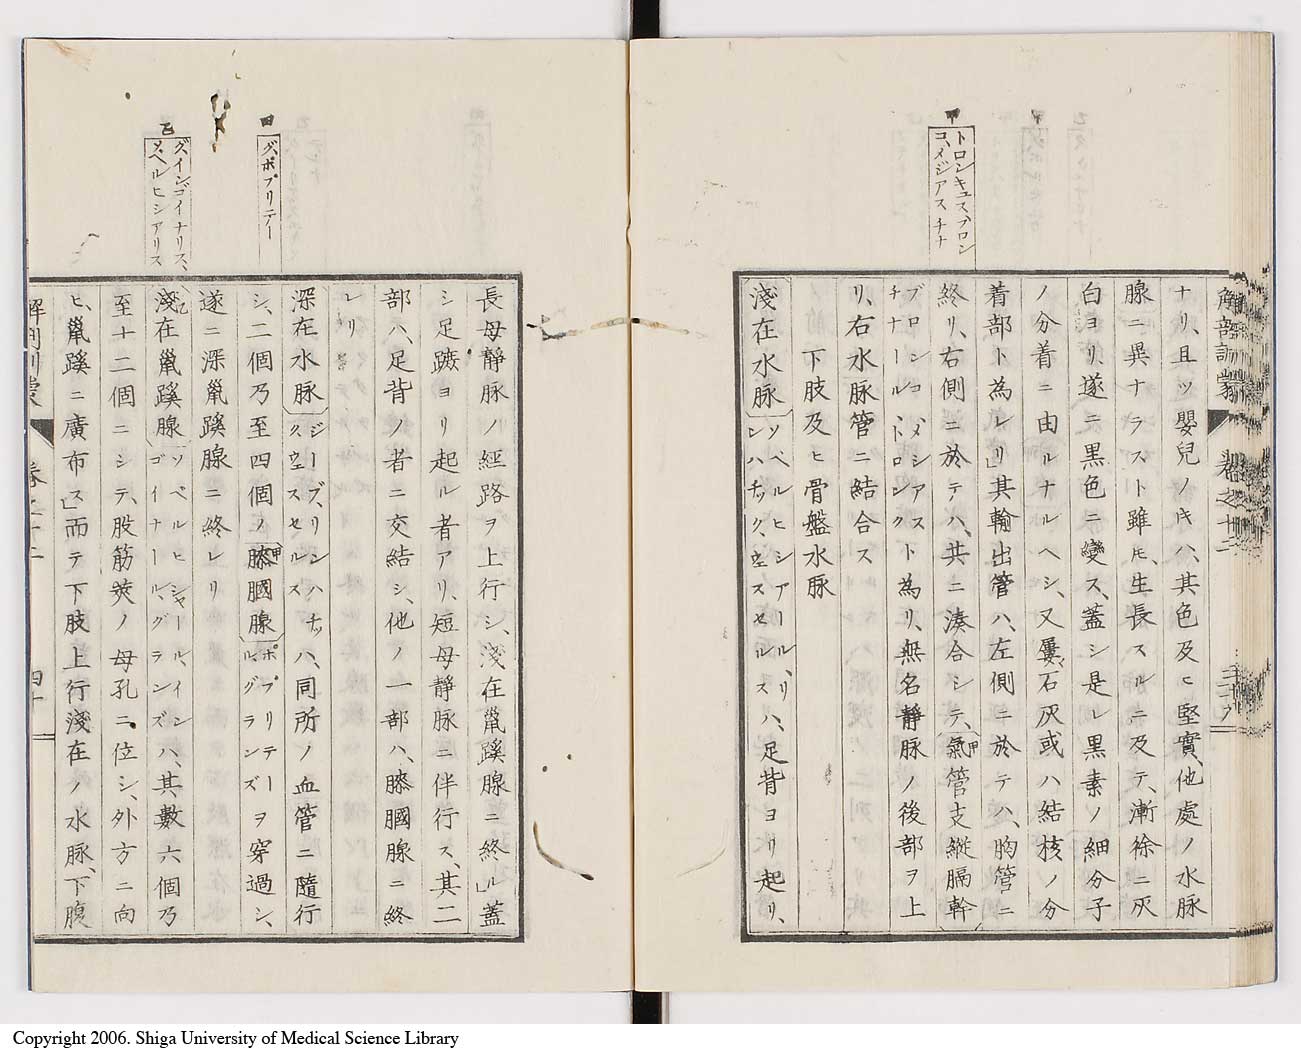 甲
トロンキュス、ブロン
コ、メジアスチナ
解剖訓蒙
卷之十二
ナリ、且ツ嬰兒ノ𪜈ハ、其色及ヒ堅實、他處ノ水脉
腺ニ異ナラスト雖𪜈、生長スルニ及テ、漸徐ニ灰
白ヨリ、遂ニ黒色ニ變ス、蓋シ是レ黒素ノ細分子
ノ分着ニ由ルナルヘシ、又屢、石灰或ハ結核ノ分
着部ト為レリ」其輸出管ハ、左側ニ於テハ、胸管ニ
終リ、右側ニ於テハ、共ニ湊合シテ、氣管支縦膈幹
ブロンコ、メシアス
チナール、トロンク
ト為リ、無名靜脉ノ後部ヲ上
リ、右水脉管ニ結合ス
下肢及ヒ骨盤水脉
淺在水脉
ソペルヒシアール、リ
ンハチック、ウェスセルス
ハ、足背ヨリ起リ、
甲
グ、ポプリテー
乙
グ、インゴイナリス、
ソ、ペルヒシアリス
長母靜脉ノ經路ヲ上行シ、淺在鼠蹊腺ニ終ル」蓋
シ足蹠ヨリ起ル者アリ、短母靜脉ニ伴行ス、其二
部ハ、足背ノ者ニ交結シ、他ノ一部ハ、膝膕腺ニ終
レリ
深在水脉
ジープ、リンハチッ
ク、ウェスセルス
ハ、同所ノ血管ニ隨行
シ、二個乃至四個ノ
甲
膝膕腺
ポプリテー
ル、グランズ
ヲ穿過シ、
遂ニ深鼠蹊腺ニ終レリ
乙
淺在鼠蹊腺
ソペルヒシャール、イン
ゴイナール、グランズ
ハ、其數六個乃
至十二個ニシテ、股筋莢ノ母孔ニ位シ、外方ニ向
ヒ、鼠蹊ニ廣布ス」而テ下肢上行淺在ノ水脉、下腹
四十